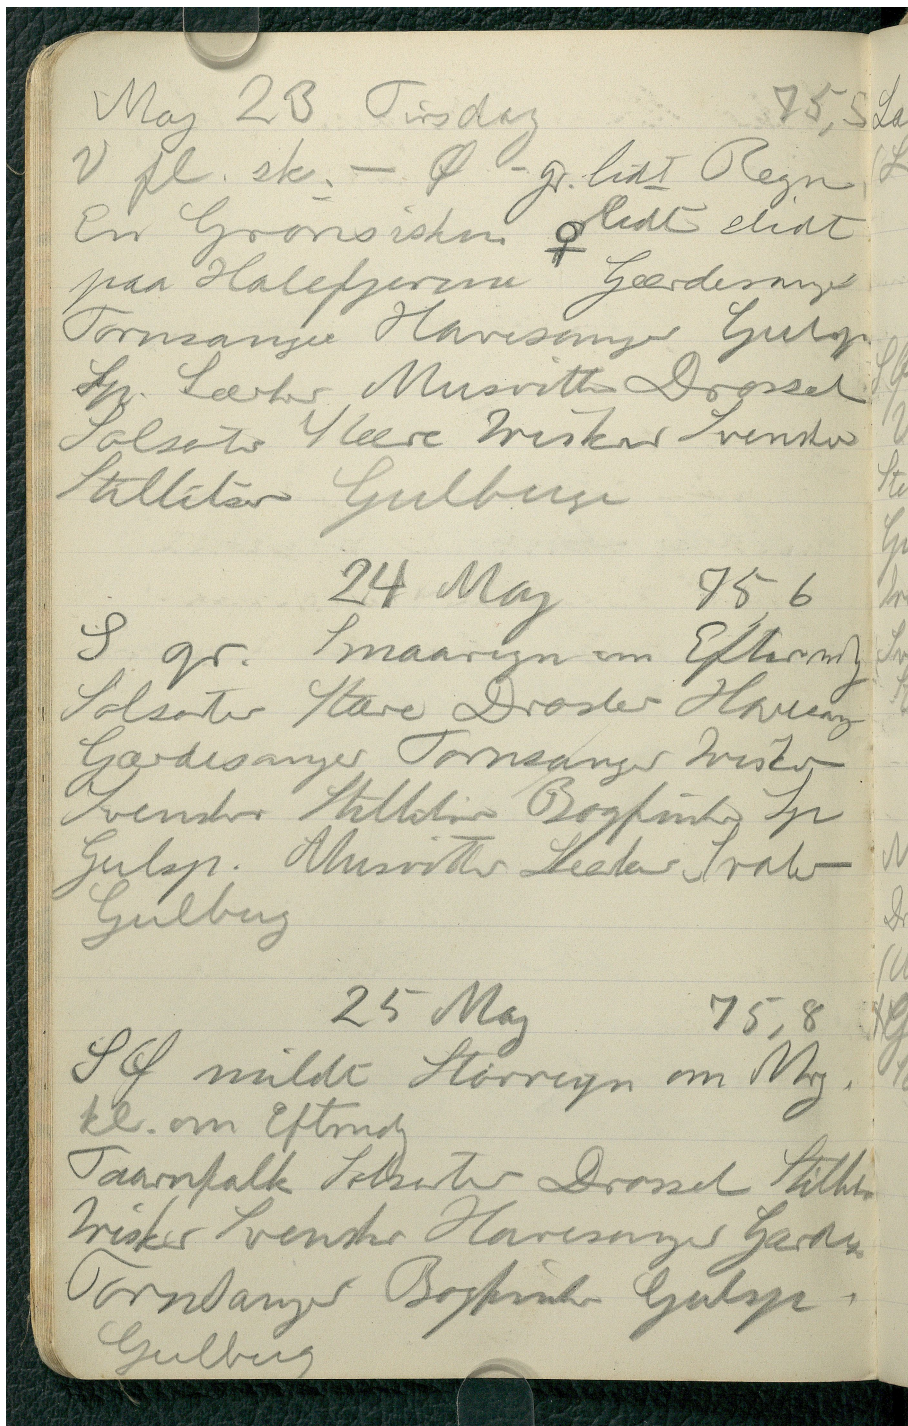 May 23 Tirsdag 75,5
V fl. sk. – Ø – gr. lidt Regn
En Grönsisken ♀ lidt slidt
paa Halefjerene Gærdesanger
Tornsanger Havesanger Gulsp.
Sp. Lærker Musvitter Drossel
Solsorte Stære Irisker Svenske
Stillitser Gulbug
24 May 75,6
S gr. Smaaregn om Eftermdg
Solsorter Stære Drosler Havesang
Gærdesanger Tornsanger Irisker
Svensker Stillitser Bogfinker Sp
Gulsp. Musvitter Lærker Svaler
Gulbug
25 May 75,8
SØ mildt Störregn om Mrg.
kl. om Eftmdg
Taarnfalk Solsorter Drossel Stillits
Irisker Svensker Havesanger Gærdes
Tornsanger Bogfinker Gulsp.
Gulbug